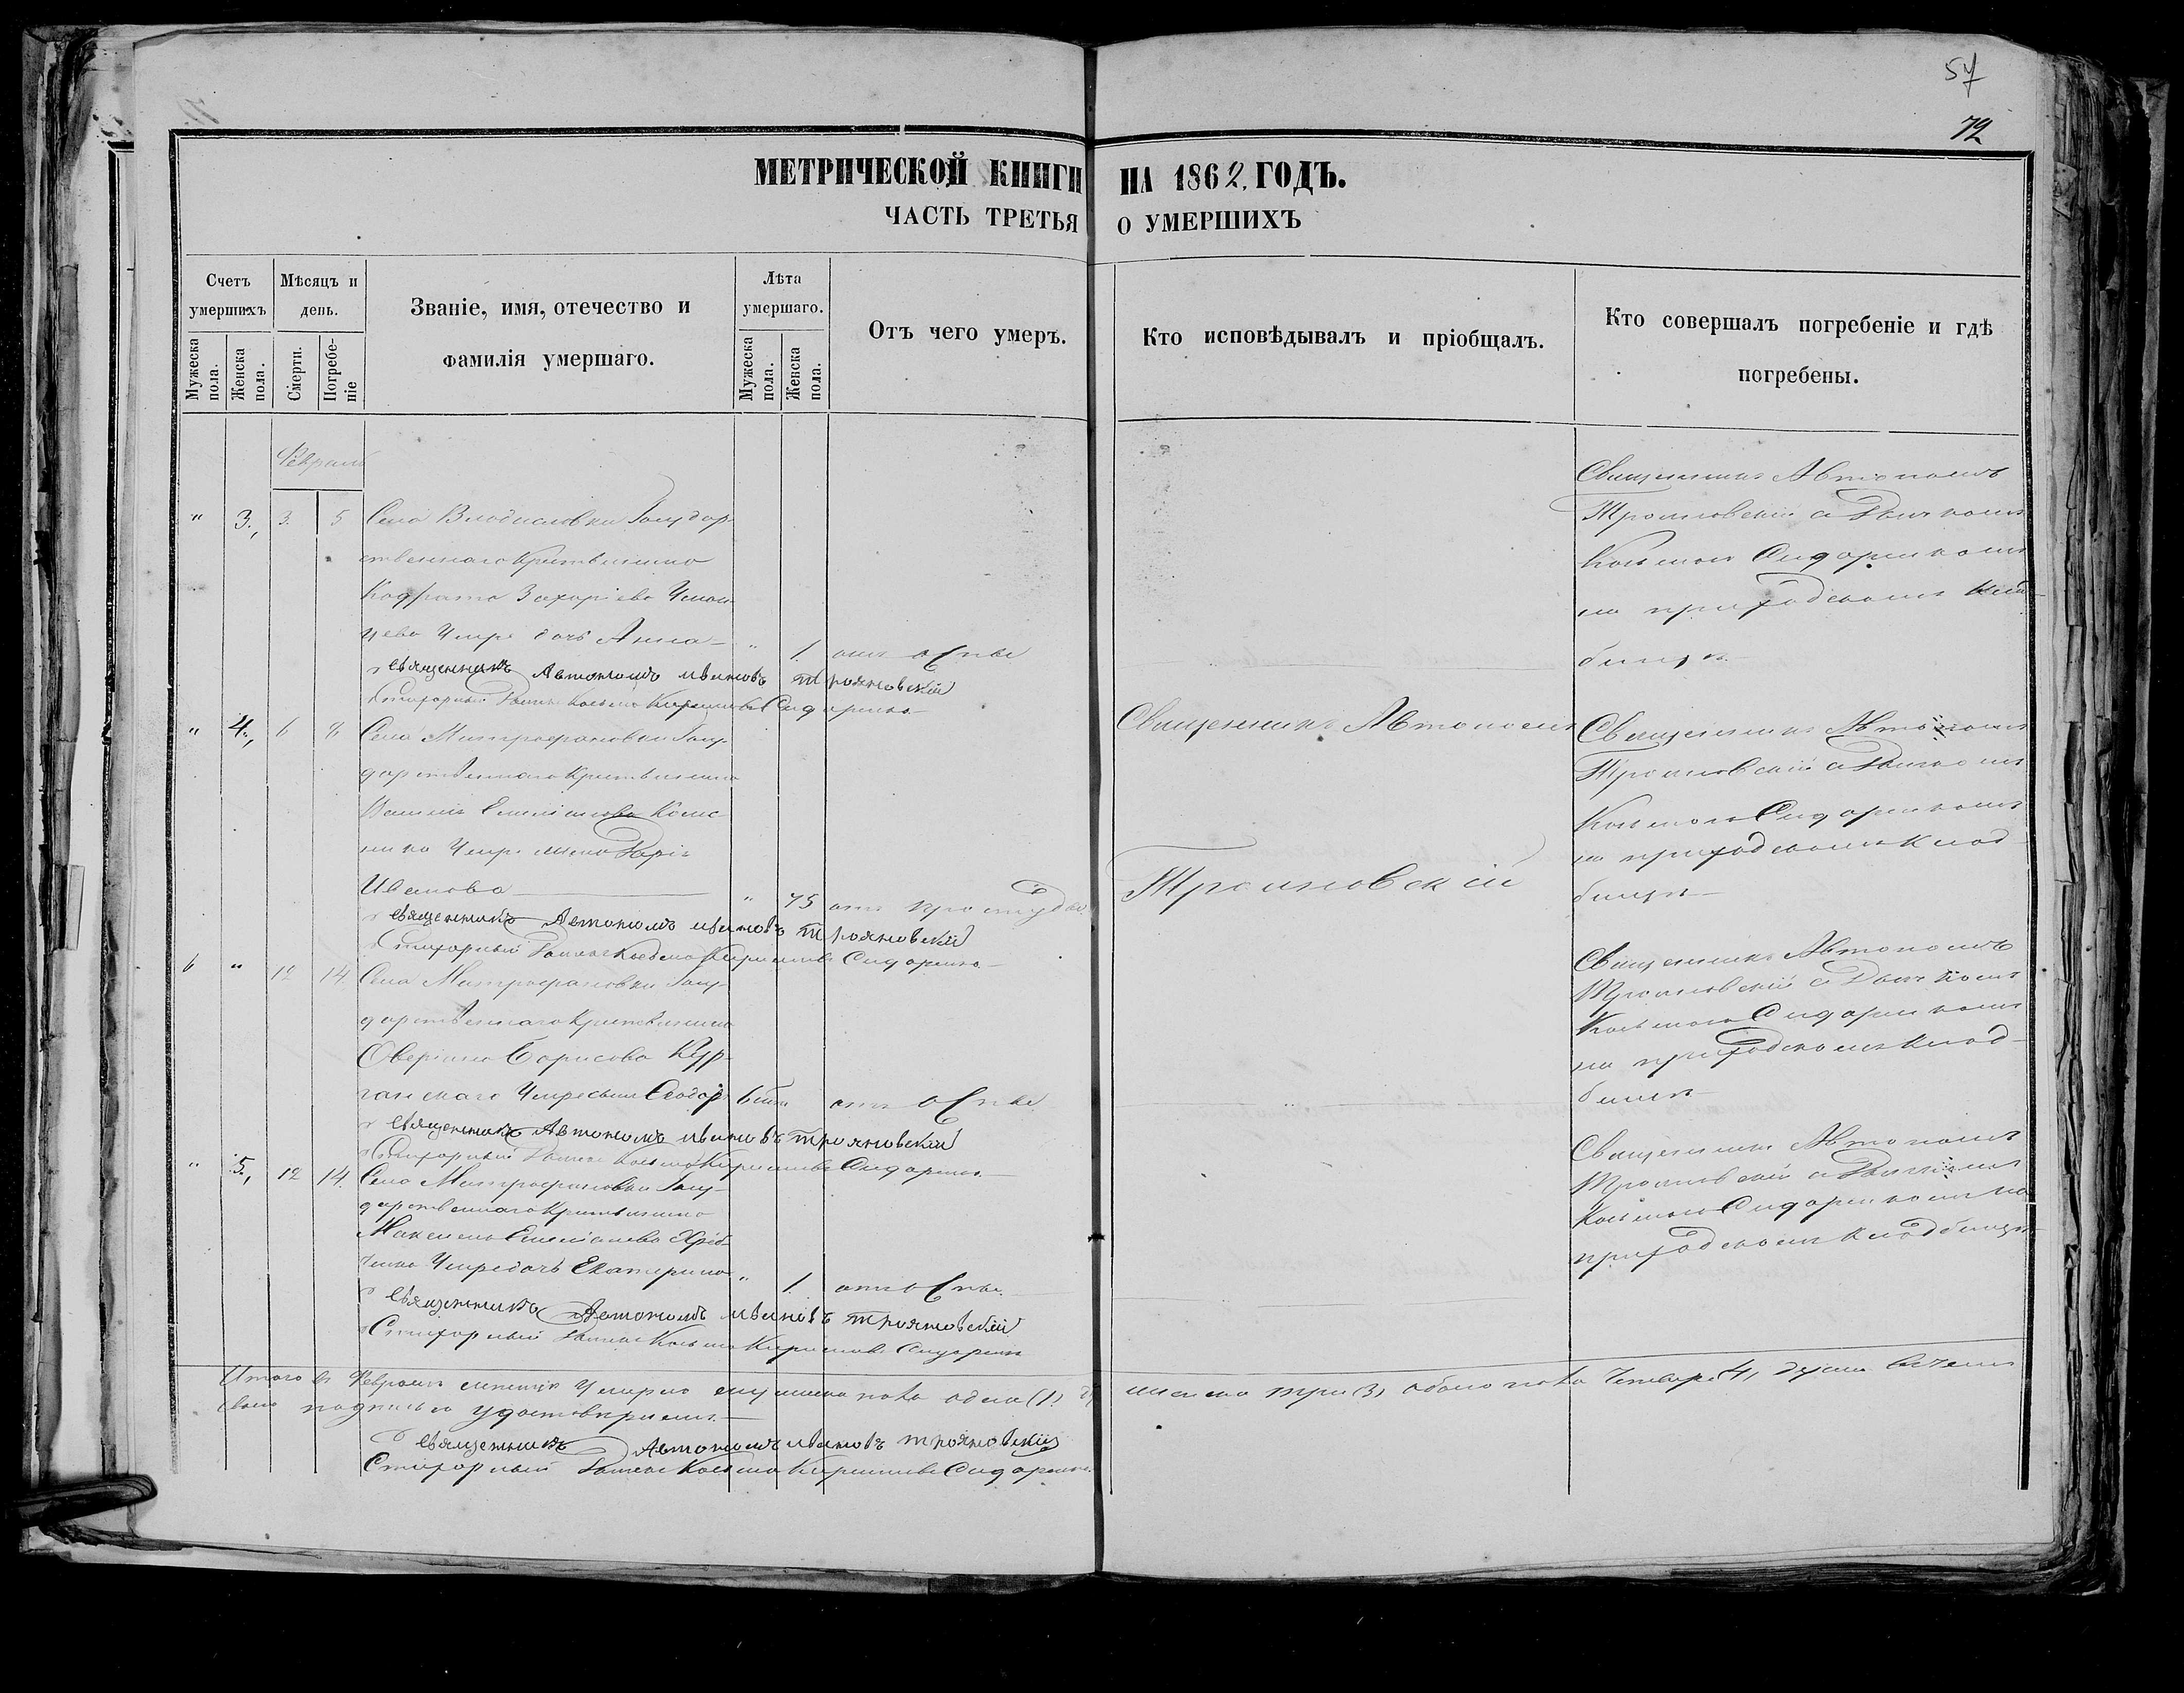 57
72
МЕТРИЧЕСКОЙ КНИГИ НА 1862 ГОДЪ.
ЧАСТЬ ТРЕТЬЯ О УМЕРШИХЪ
Счетъ умершихъ
Мѣсяцъ и день.
Званіе, имя, отечество и фамилія умершаго.
Лѣта умершаго.
Отъ чего умеръ.
Кто исповѣдывалъ и пріобщалъ.
Кто совершалъ погребеніе и гдѣ погребены.
Мужеска пола.
Женска пола.
Смерти.
Погребеніе
Мужеска пола.
Женска пола.
Февраль
" 3, 3. 5 Села Владиславки Государ-
ственнаго Крестьянина
Кодрата Захаріева
Умре дочь Анна " 1. отъ оспы
Священникъ Автономъ Ивановъ Трояновскій
Стихарный Дьячекъ Косьма Кириловъ Сидоренко
Священникъ Автономъ
Трояновскій съ Дьячкомъ
Косьмою Сидоренкомъ
на приходскомъ клад-
бищѣ
" 4, 6 8 Села Митрофановки Госу-
дарственнаго Крестьянина
Емеліанова
Умре жена Дарія
Иванова " 75 отъ простуды
Священникъ Автономъ Ивановъ Трояновскій
Стихарный Дьячекъ Косьма Кириловъ Сидоренко
Священникъ Автономъ
Трояновскій
Священникъ Автономъ
Трояновскій съ Дьячкомъ
Косьмою Сидоренкомъ
на приходскомъ клад-
бищѣ
6 " 12 14. Села Митрофановки Госу-
дарственнаго Крестьянина
Борисова Кур-
ганскаго Умре сынъ Ѳеодоръ отъ оспы
Священникъ Автономъ Ивановъ Трояновскій
Стихарный Дьячекъ Косьма Кириловъ Сидоренко
Священникъ Автономъ
Трояновскій съ Дьячкомъ
Косьмою Сидоренкомъ
на приходскомъ клад-
бищѣ
" 5, 12 14. Села Митрофановки Госу-
дарственнаго Крестьянина
Максима Емеліанова
Умре дочь Екатерина " 1. отъ оспы.
Священникъ Автономъ Ивановъ Трояновскій
Стихарный Дьячекъ Косьма Кириловъ Сидоренко
Священникъ Автономъ
Трояновскій съ Дьячкомъ
Косьмою Сидоренкомъ на
приходскомъ кладбищѣ
Итого въ Февралѣ мѣсяцѣ умерло мужеска пола одна (1) женска три (3) обоего пола четыре 4, души въ чемъ
своею подписью удостовѣряемъ.
Священникъ Автономъ Ивановъ Трояновскій
Стихарный Дьячекъ Косьма Кириловъ Сидоренко.